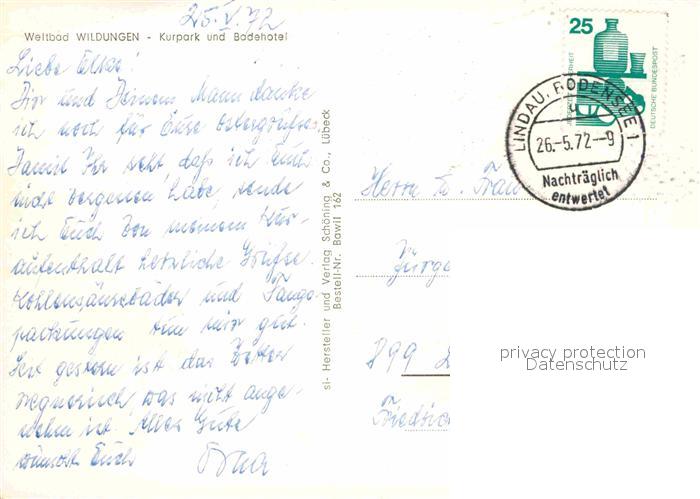 25.V.72
Weltbad WILDUNGEN - Kurpark und Badehotel
Liebe Elke!
Dir und Deinem Mann danke
ich noch für Eure Ostergrüße.
Damit Ihr seht daß ich Euch
nicht vergessen habe, sende
ich Euch von meinem Kur-
aufenthalt herzliche Grüße.
Kohlensäurebäder und Fango-
packungen tun mir gut.
Seit gestern ist das Wetter
regnerisch, was nicht ange-
nehm ist. Alles Gute
wünscht Euch
si- Hersteller und Verlag Schöning & Co., Lübeck
Bestell-Nr. Bawil 162
25
JEDERZEIT SICHERHEIT
DEUTSCHE BUNDESPOST
LINDAU, BODENSEE 1
26.-5.72--9
Nachträglich
entwertet
Herrn u. Frau
Jürge
899
Friedric
privacy protection
Datenschutz